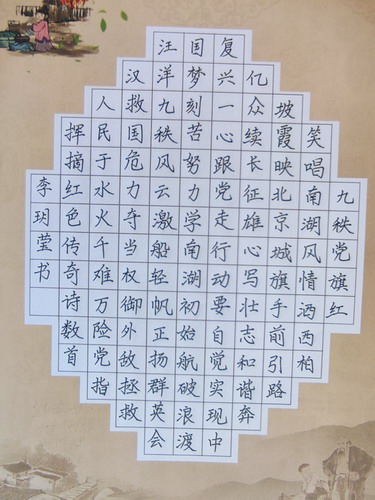 九秩党旗红
笑唱南湖风情洒西柏
坡霞映北京城旗手前引路
亿众续长征雄心写壮志和谐奔
复兴一心跟党走行动要自觉实现中
国梦刻苦努力学南湖初始航破浪渡
汪洋九秩风云激船轻帆正扬群英会
汉救国危力夺当权御外敌拯救
人民于水火千难万险党指
挥摘红色传奇诗数首
李玥莹书